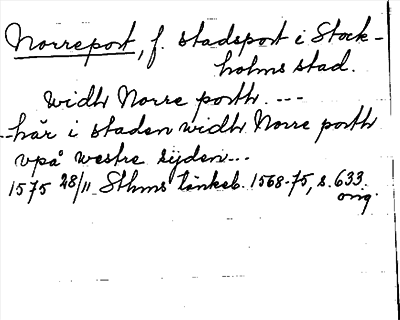 Norreport, f. stadsport i Stock-
holms stad.
widh Norre porth. ---
--här i staden widh Norre porth
vpå westre sijden---
1575 28/11 Sthms tänkeb. 1568-75, s. 633.
orig.